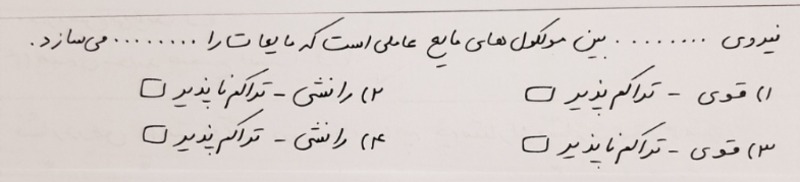 نیروی ........ بین مولکول‌های مایع عاملی است که مایعات را ........ می‌سازد.
۱) قوی - تراکم پذیر □ ۲) رانشی - تراکم ناپذیر □
۳) قوی - تراکم ناپذیر □ ۴) رانشی - تراکم پذیر □